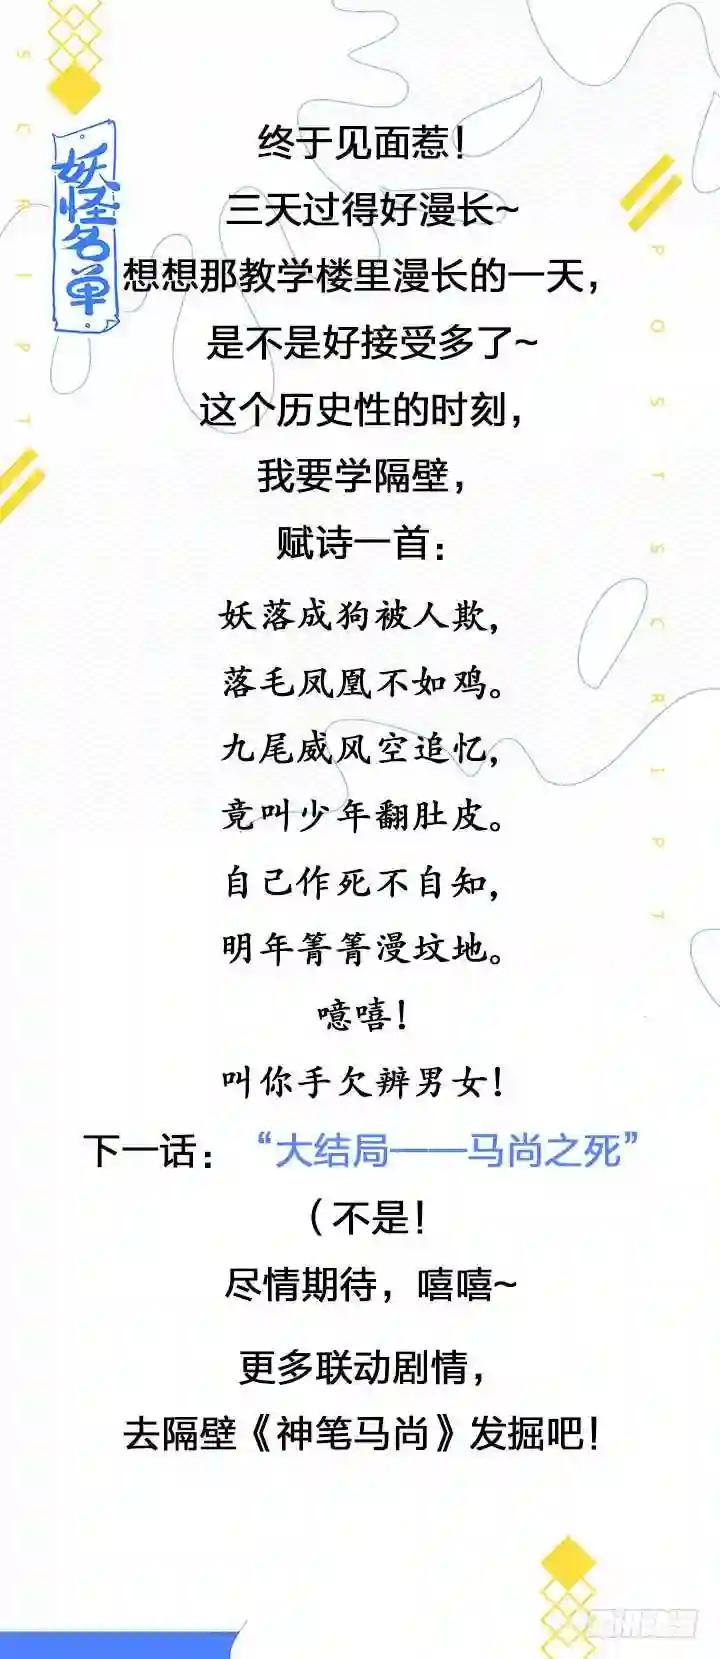 妖怪名单
POSTSCRIPT
POSTSCRIPT
终于见面惹！
三天过得好漫长~
想想那教学楼里漫长的一天，
是不是好接受多了~
这个历史性的时刻，
我要学隔壁，
赋诗一首：
妖落成狗被人欺，
落毛凤凰不如鸡。
九尾威风空追忆，
竟叫少年翻肚皮。
自己作死不自知，
明年箐箐漫坟地。
噫嘻！
叫你手欠辨男女！
下一话：“大结局——马尚之死”
（不是！
尽情期待，嘻嘻~
更多联动剧情，
去隔壁《神笔马尚》发掘吧！